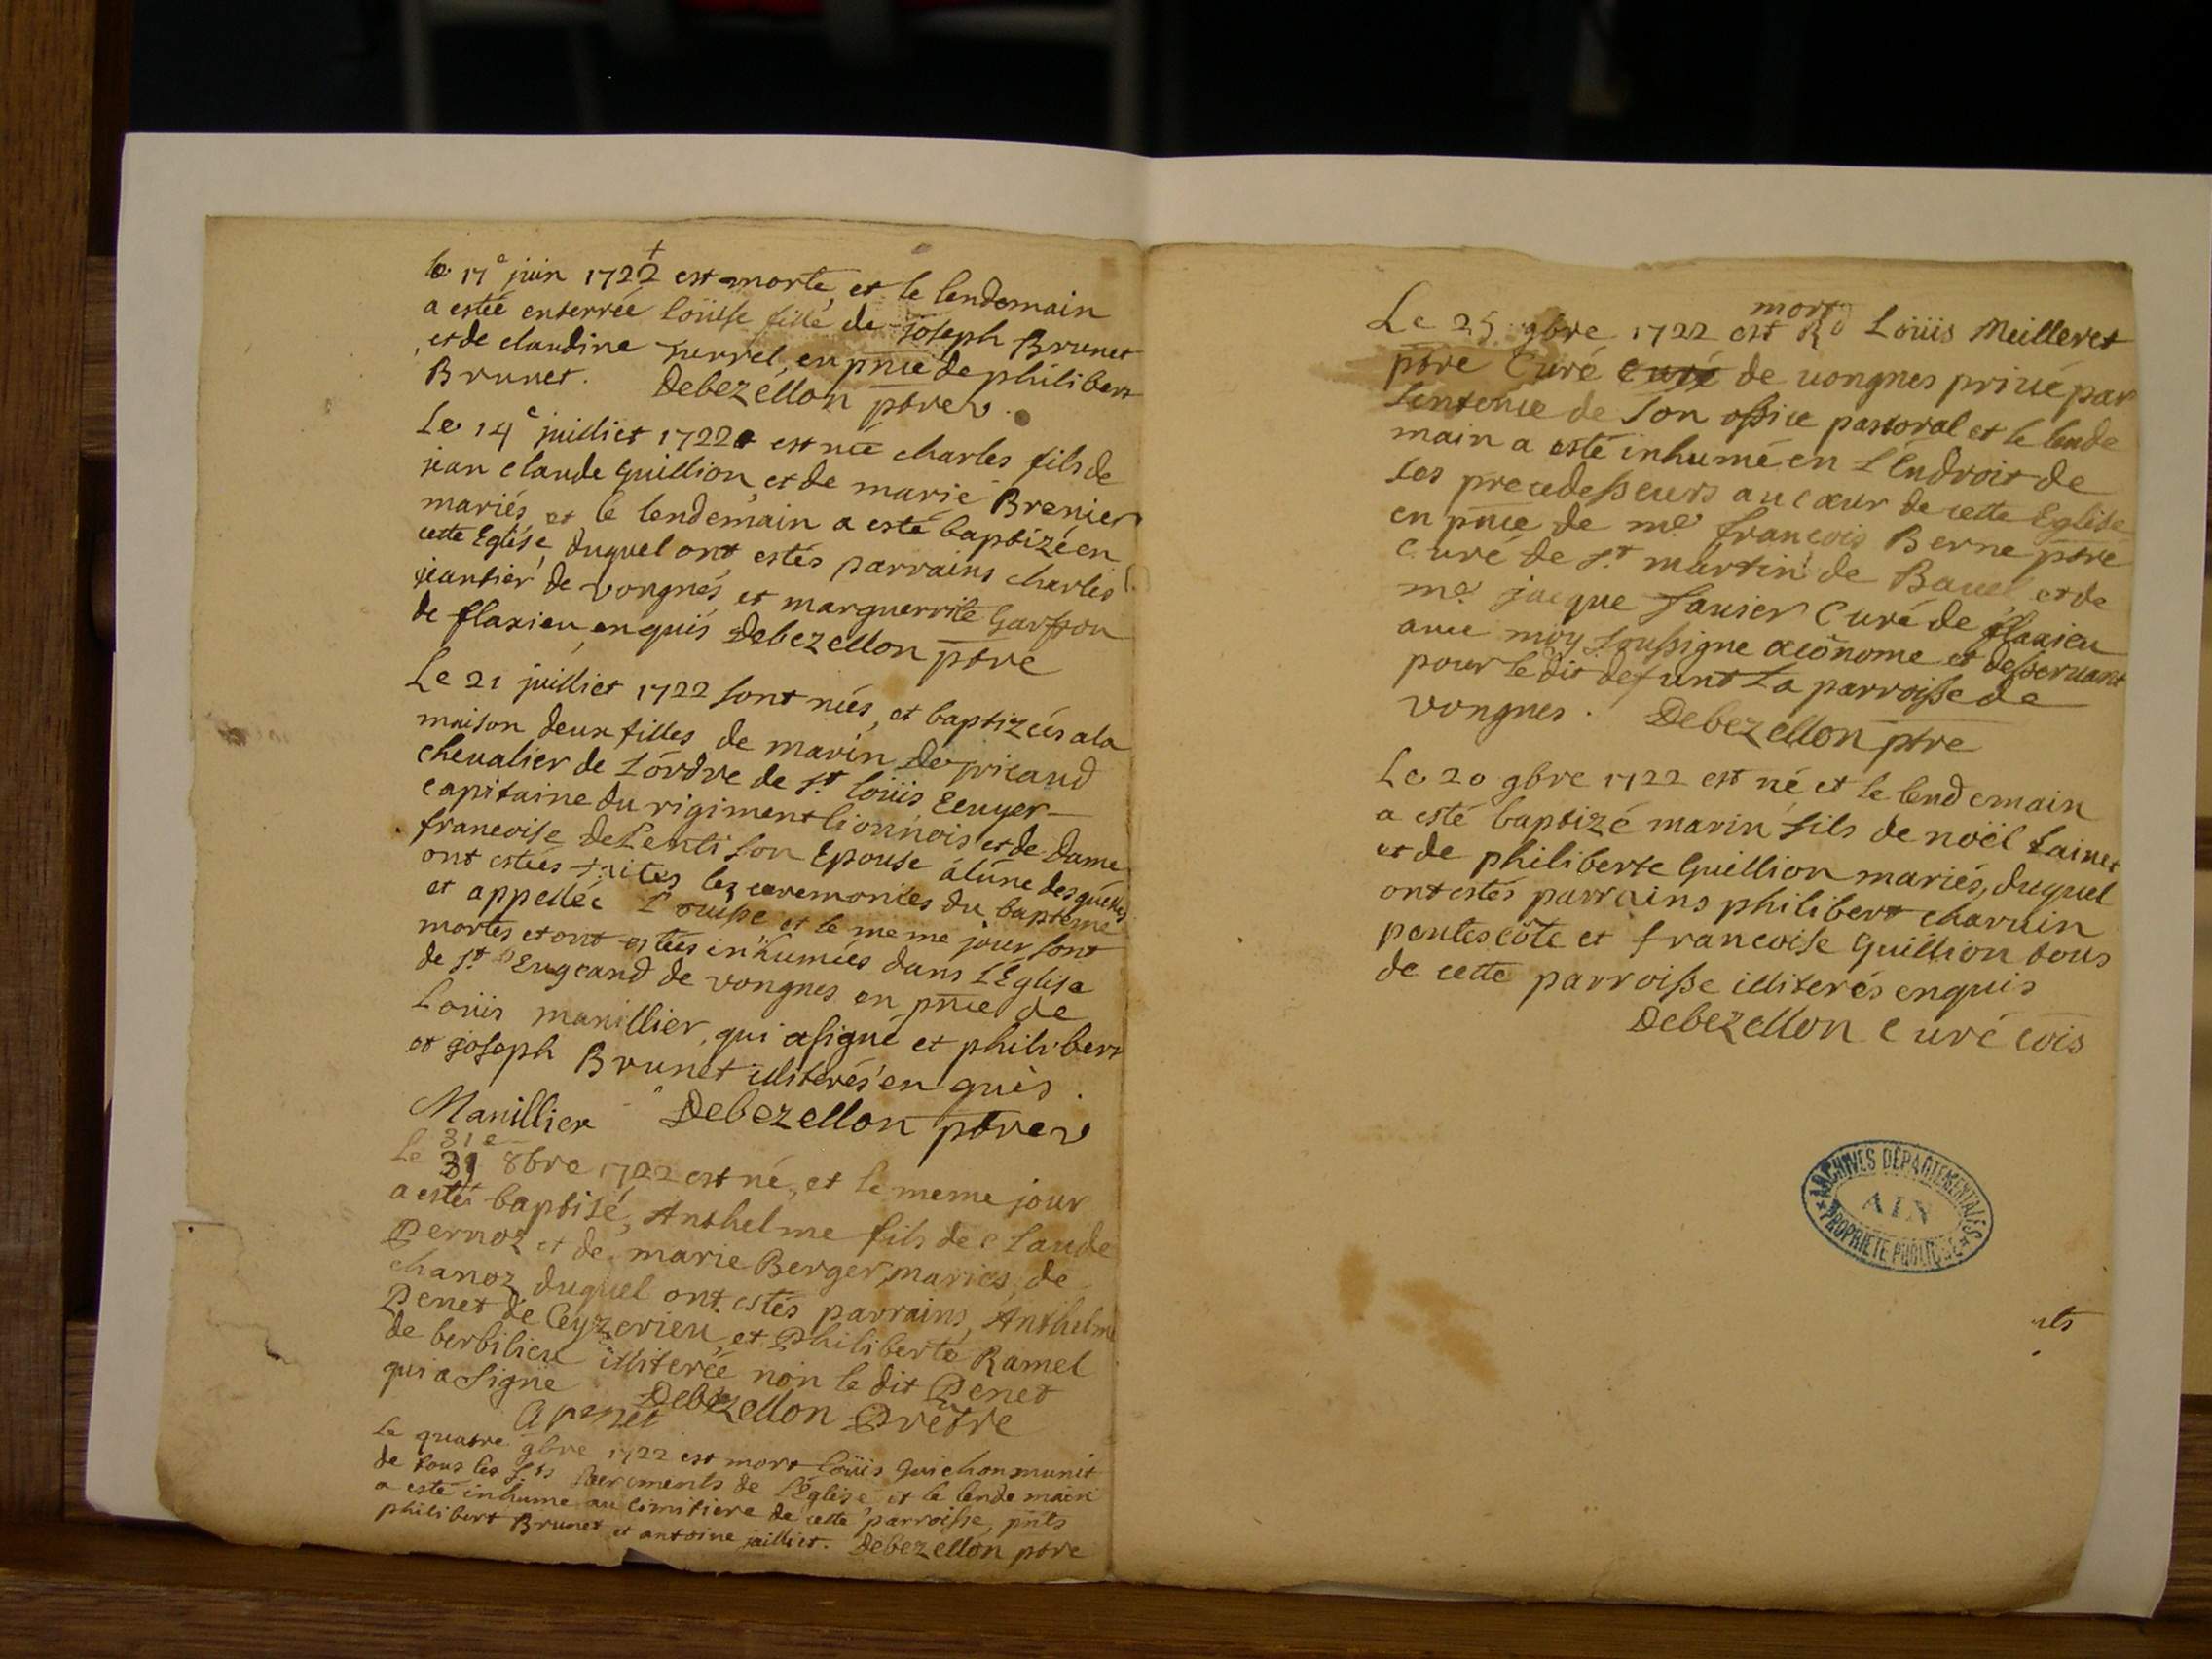 le 17e juin 1722 est morte, et le lendemain
a estée enterrée Loüise fille de Joseph Brunet
et de claudine Surrel, en pn̄ce de philibert
Brunet. Debezellon ptre
Le 14e juilliet 1722 est née charles fils de
jean claude Guillion, et de marie Brenier
mariés, et le lendemain a esté baptizé en
cette Eglise, duquel ont estés parrains charles
jeantier de vongnes, et marguerrite
de flaxieu enquis Debezellon ptre
Le 21 juilliet 1722 sont niés, et baptizées a la
maison deux filles de marin De pricaud
chevalier de L'ordre de St. Loüis Ecuyer
capitaine du rigiment lionnois et de Dame
francoise De Lenti son Epouse a lune desquéles
ont estées faites lez ceremonies du bapteme
et appellée Louisse, et le meme jour sont
mortes et ont estées inhumées dans L'Eglise
de St. Eugeand de vongnes en pn̄ce de
Loüis manillier, qui a signé et philibert
et joseph Brunet illiterés enquis.
Manillier Debezellon ptre
31e
Le 31 8bre 1722 est né, et le meme jour
a estés baptisé, Anthelme fils de claude
Pernoz et de marie Berger, mariés, de
chanoz duquel ont estés parrains, Anthelme
Penet de Ceyzerieu, et Philiberte Ramel
de berbilieu illiterée non le dit Penet
qui a signé Debezellon Prêtre
A penet
Le quatre 9bre 1722 est mort Loüis Guichon munit
de tous les Sts Sacrements de l'Eglise et le lendemain
a esté inhumé au cimitiere de cette parroisse, pn̄ts
philibert Brunet et antoine jailliet. Debezellon ptre
mort
Le 25 9bre 1722 est Rd Loüis Meilleret
ptre Curé Curé de vongnes privé par
sentence de son office pastoral et le lende
main a esté inhumé en L'Endroit de
ses precedesseurs au cœur de cette Eglise
en pn̄ce de me françois Berne ptre
curé de St. martin de Bavel et de
me jacque Sanier Curé de flaxieu
avec moy soussigné œconome et desservant
pour le dit defunt La parroisse de
vongnes. Debezellon ptre
Le 20 9bre 1722 est né et le lendemain
a esté baptizé marin fils de noël Lainet
et de philiberte Guillion mariés, duquel
ont estés parrains philibert charvin
pentescôte et francoise Guillion tous
de cette parroisse illiterés enquis
Debezellon Curé
ARCHIVES DÉPARTEMENTALES
AIN
PROPRIÉTÉ PUBLIQUE